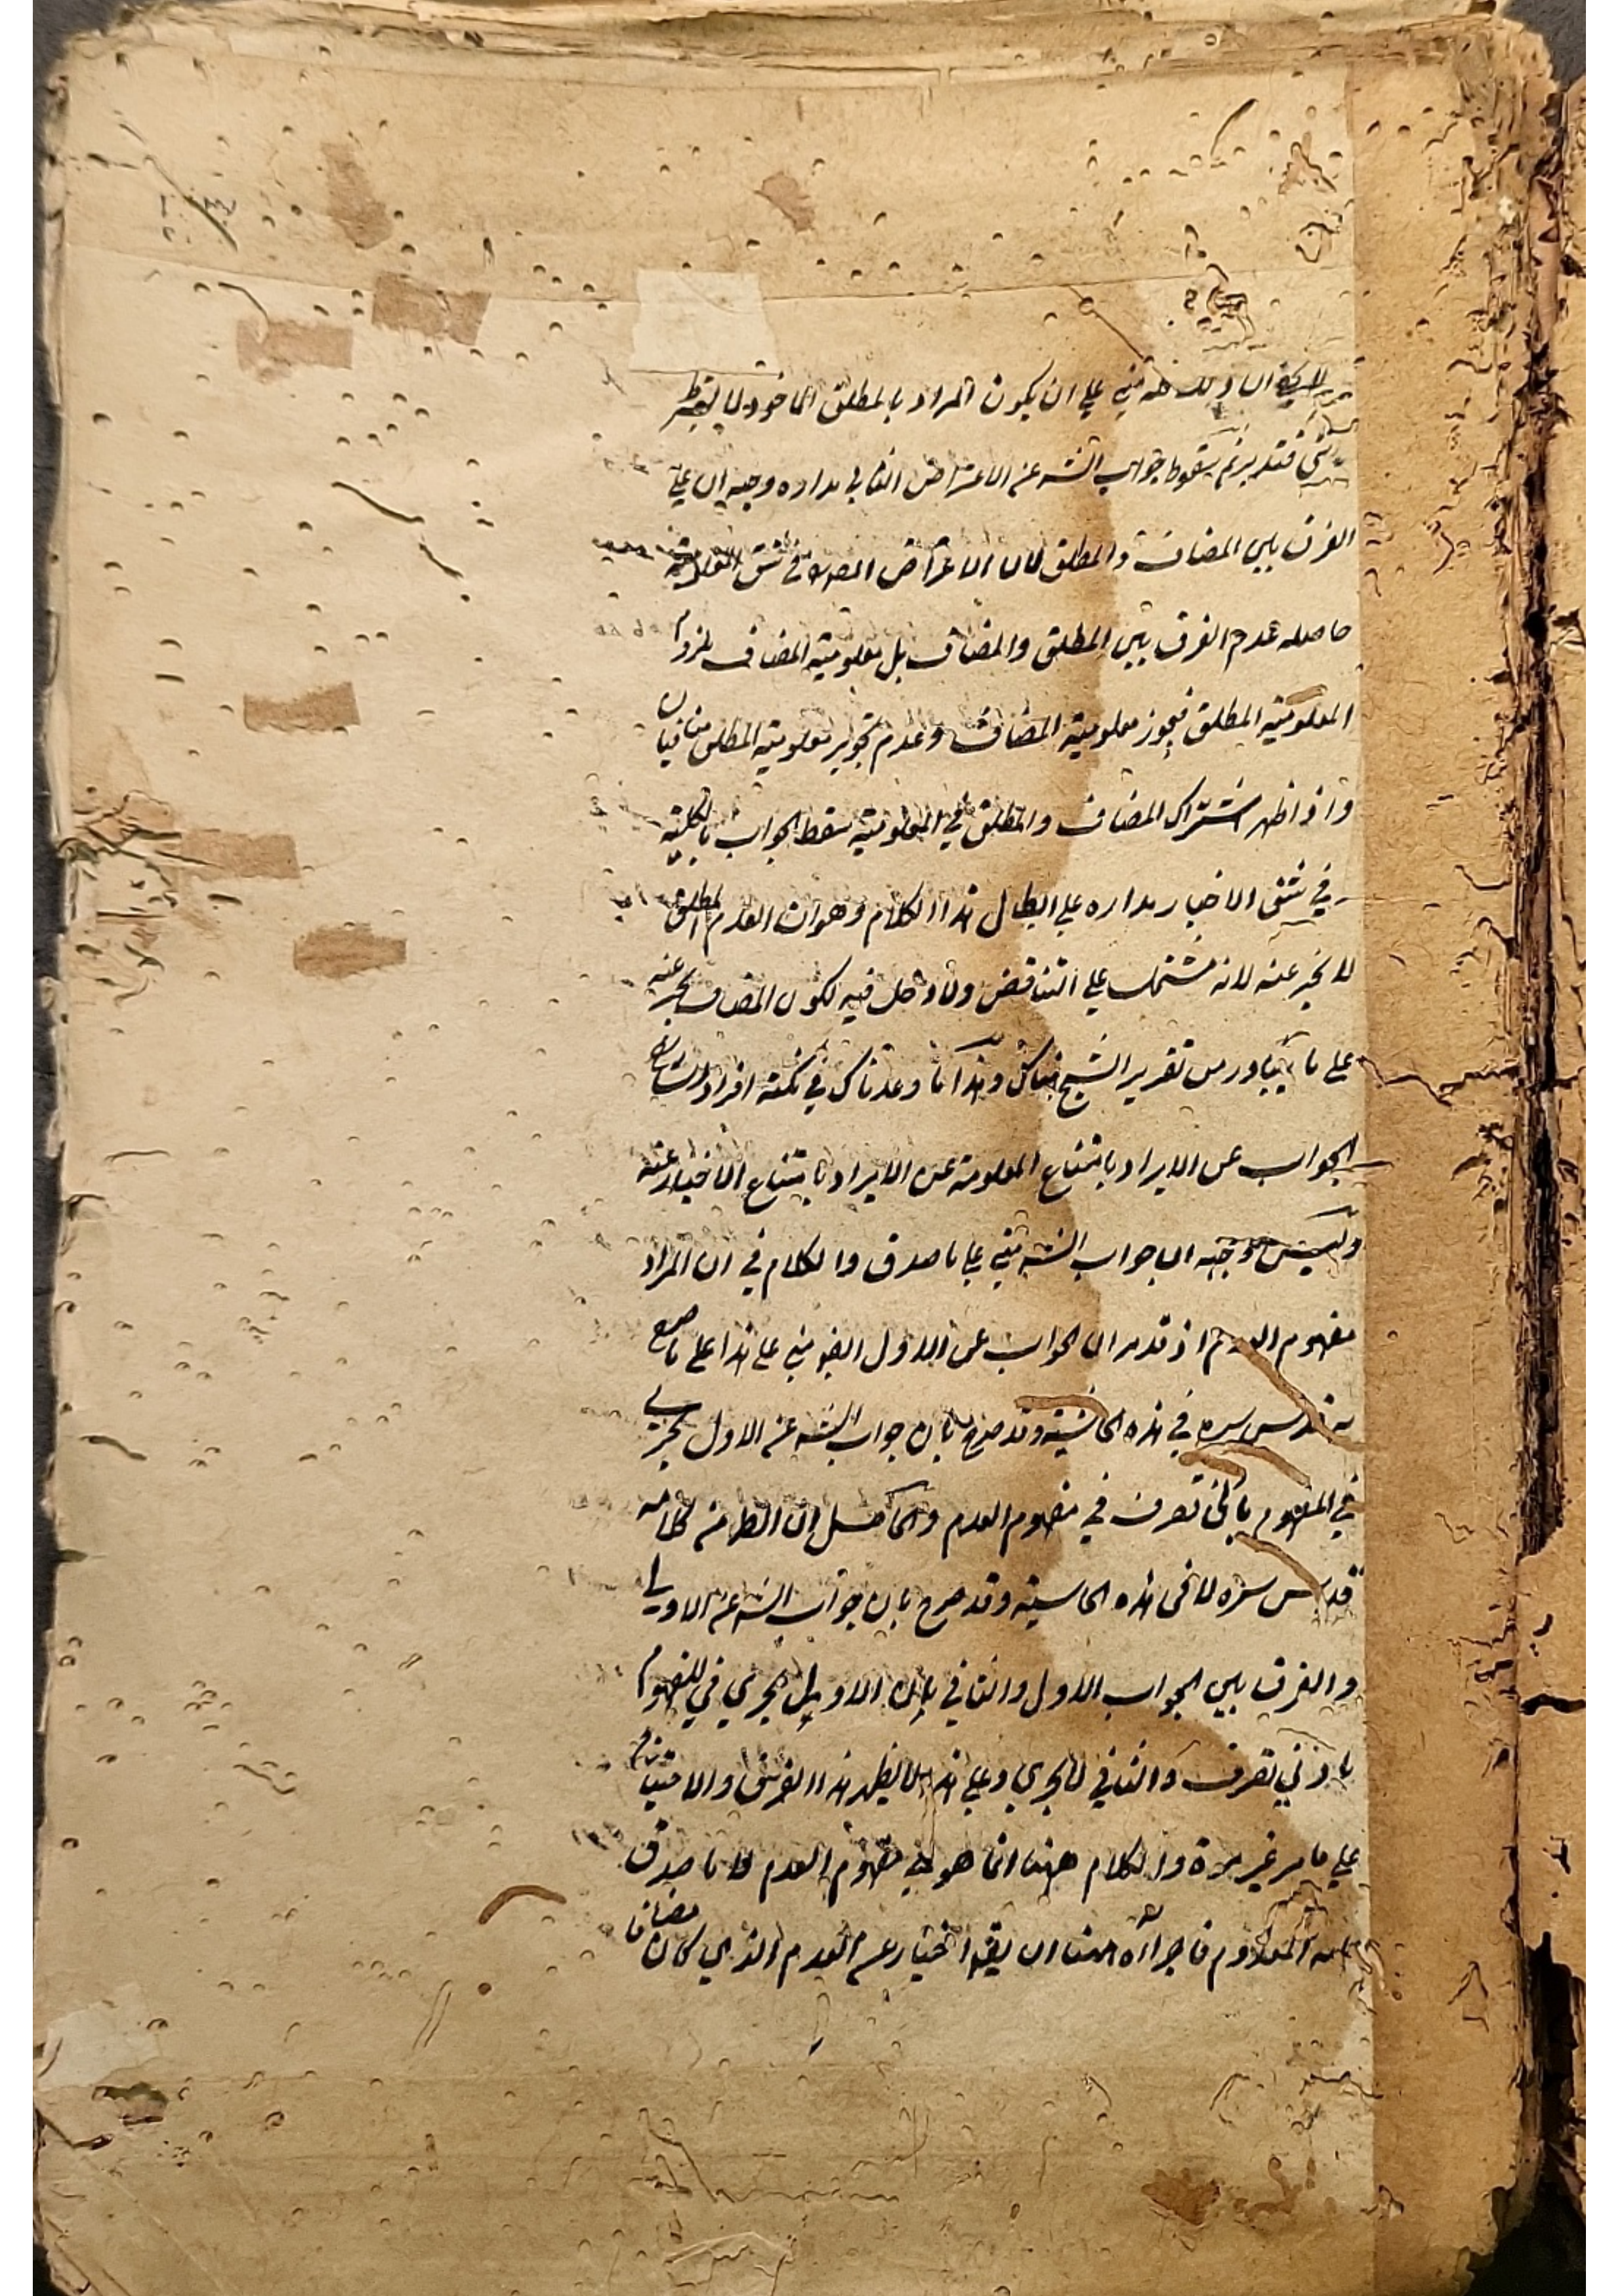 على ان يكون المراد بالمطلق الماخوذ لا بشرط
شئ فتدبر ثم سقوط جواب الشه عن الاعتراض الثاني مداره وجهه ان على
الفرق بين المضاف والمطلق لان الاعتراض المصدر في شق المعلومية
حاصله عدم الفرق بين المطلق والمضاف بل معلومية المضاف ملزوم
المعلومية المطلق فيجوز معلومية المضاف وعدم تجويز معلومية المطلق متنافيان
واذا ظهر اشتراك المضاف والمطلق في المعلومية سقط الجواب بالكلية
في شق الاخبار مداره على ابطال هذا الكلام وهو ان العدم المطلق
لا يخبر عنه لانه مشتمل على التناقض ولا دخل فيه لكون المضاف يخبر عنه
على ما يتبادر من تقرير الشيخ هناك وهذا ما وعدناك في نكتة افراد
الجواب عن الايراد بامتناع المعلومية عن الايراد بامتناع الاخبار عنه
وليس وجهه ان جواب الشه مبني على ما صدق والكلام في ان المراد
مفهوم العدم اذ قد مر ان الجواب عن الاول ايضو مبني على هذا على ما صرح
به قدس سره في هذه الحاشية وقد صرح بان جواب الشه عن الاول يجري
في المفهوم بادنى تصرف في مفهوم العدم والحاصل ان الظ من كلامه
قدس سره لا في هذه الحاشية وقد صرح بان جواب الشه عن الاول
والفرق بين الجواب الاول والثاني بان الاول يجري في المفهوم
بادنى تصرف والثاني لا يجري وعلى هذا لا يظهر هذا الفرق والامتياز
على ما مر غير مرة والكلام ههنا انما هو في مفهوم العدم لا ما صدق
عليه المعدوم فاجراؤه ههنا ان يقو اختيار عن العدم الذي كان مضافا